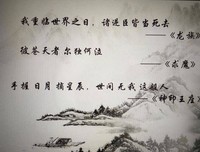 我重临世界之日，诸逆臣皆当死去
——《龙族》
彼苍天者尔独何泣
——《求魔》
手握日月摘星辰，世间无我这般人
——《神印王座》